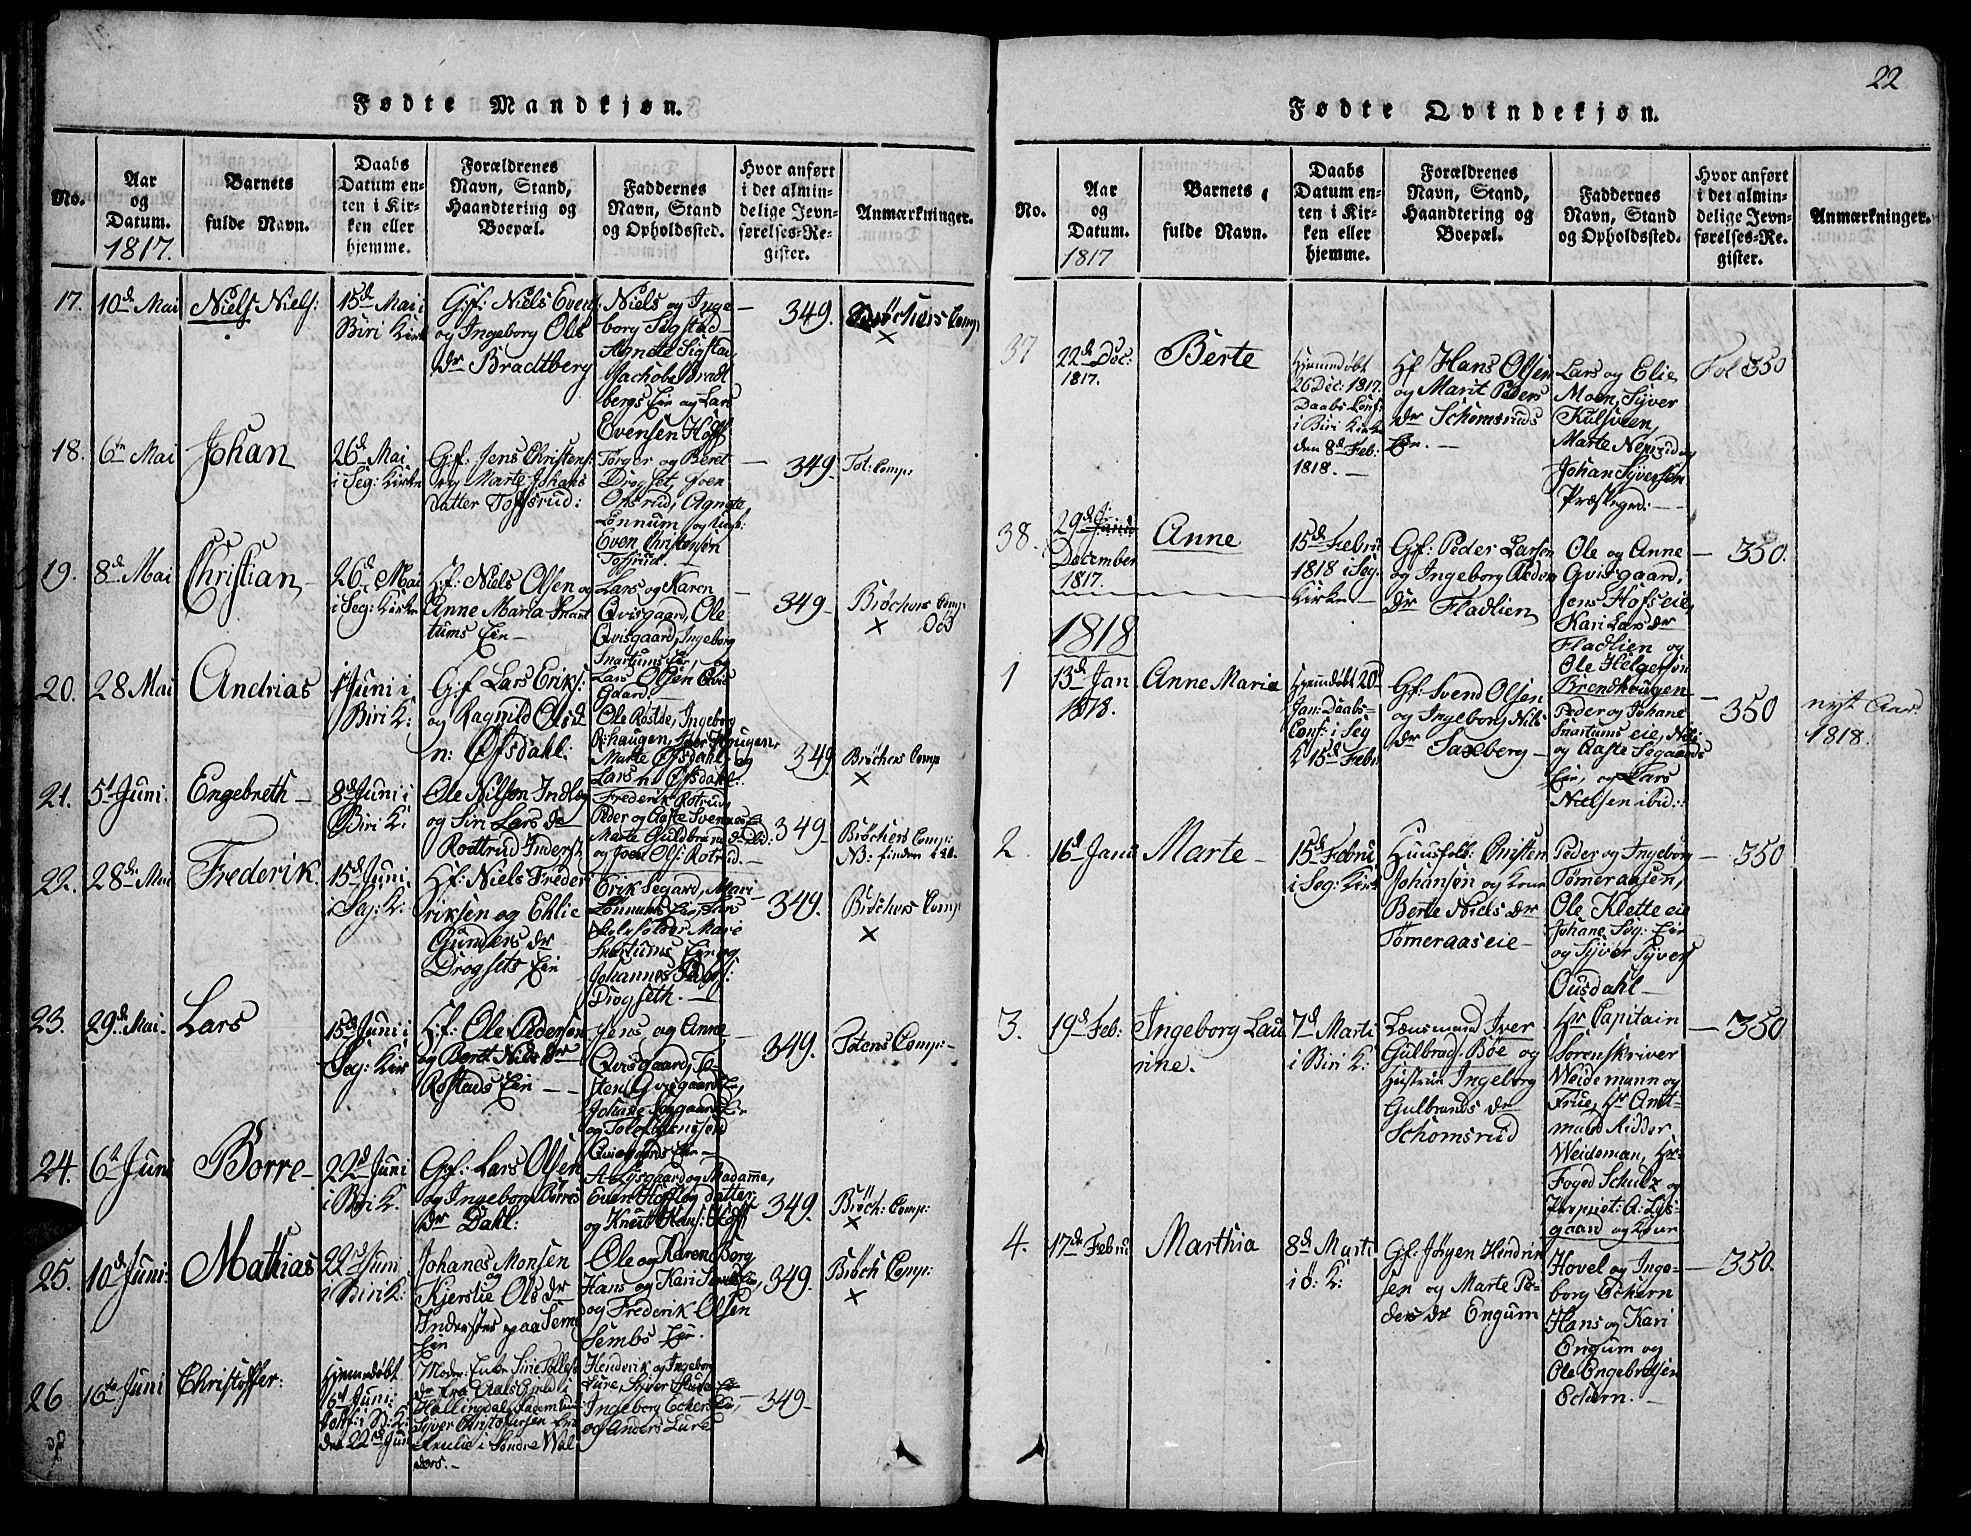 22
Fødte Mandkjøn.
No.
Aar
og
Datum.
1817.
Barnets
fulde Navn.
Daabs
Datum en-
ten i Kir-
ken eller
hjemme.
Forældrenes
Navn, Stand,
Haandtering og
Boepæl.
Faddernes
Navn, Stand
og Opholdssted.
Hvor anført
i det almin-
delige Jevn-
førelses-Re-
gister.
Anmærkninger.
17.
10de Mai
Niels Niels:
15de Mai i
Biri Kirke
Gif: Niels Even
og Ingeborg Ols
Dr Bradtberg
Niels og Inge
borg Sigstad
Agnete Sigstad,
Jachobe Bradt
bergs Eie og Lars
Evensen Hoff
349.
Bröchers Comp:
×
18.
6te Mai
Johan
26de Mai
i Seg: Kirke
Gif: Jens Christens:
og Marte Johans
datter Tofsrud:
Torger og Beret
Drogset, Even
Onsrud, Agnete
Lönnum og Ungk:
Even Christensen
Tofsrud.
349.
Tot: Comp:
19.
8de Mai
Christian
26de Mai
i Seg: Kirke
Hf: Niels Olsen og
Anne Maria Snar
tums Eie
Lars og Karen
Qvisgaard, Ole
Qvisgaard, Ingeborg
Snartums Eie, og
Lars Olsen Qvis
gaard
349
Bröchers Comp:
×
20.
28 Mai
Andrias
1st Juni i
Biri K:
Gif Lars Eriks:
og Ragnild Olsd
n: Öfsdahl:
Marte Öfsdahl og
Lars n: Öfsdahl:
349.
Bröchers Comp
×
21.
5t Juni.
Engebreth
8de Juni i
Biri K:
Ole Nilsen Inderst
og Siri Lars dr
Rodtrud Inderst
Frederik Rotrud,
Marte Guldbrands
og Joen Ols: Rotrud.
349
Bröchers Comp:
22.
28de Mai
Frederik.
15de Juni
i Seg: K:
Hf: Niels Freder
riksen og Ehlie
Gunders dr
Drogsets Eie
Erik Segard, Mari
Snartums Eie og
Johannes Peders:
Drogseth.
349.
Bröchers Comp:
×
23.
29de Mai
Lars
15de Juni i
Seg: Kir
Hf: Ole Pedersen
og Beret Nils dr
Rostads Eie
Jens og Anne
Qvisgaard,
Qvisgaards Eie
349.
Totens Comp:
24.
6t Juni
Börre
22de Juni
i Biri K.
Gf: Lars Olsen
og Ingeborg Börres
Dr Dahl:
A. Lysgaard og Madamme,
Even Hoff og datter,
og Knut Hans: Hoff
349.
Bröch: Comp:
×
25.
10de Juni
Mathias
22de Juni
i Biri K:
Johanes Monsen
og
Kjerstie Ols dr
Inderster paa Sems
Eie
Ole og Karen Borg
Hans og Kari Sembs Eie,
og Frederik Olsen
Sembs Eie.
349.
Bröch Comp:
×
26
16te Juni
Christoffer:
Hjemmedöbt
16t Juni:
den 22de Juni
Hallingdal,
i Söndre Wal
ders.
Henderik og Ingeborg
Lure,
Ingeborg
og Anders Lure
349
Fødte Qvindekjøn.
No.
Aar
og
Datum.
1817
Barnets
fulde Navn.
Daabs
Datum en-
ten i Kir-
ken eller
hjemme.
Forældrenes
Navn, Stand,
Haandtering og
Boepæl.
Faddernes
Navn, Stand
og Opholdssted.
Hvor anført
i det almin-
delige Jevn-
førelses-Re-
gister.
Anmærkninger.
37
22de Dec:
1817.
Berte
Hjemmdöbt
26 Dec: 1817.
Daabs Conf:
i Biri Kirke
den 8de Feb:
1818.
Hf Hans Olsen
og Marit Peders
dr Schomsruds
Eie.
Lars og Elie
Moen, Syver
Kulsveen,
Marte Nerud og
Johan Syversen
Præstegrd:
Fol 350
38.
29de
December
1817.
Anne
15de Febru
1818 i Seg.
Kirke
Gf: Peder Larsen
og Ingeborg Peders
Dr Fladlien
Ole og Anne
Qvisgaard,
Jens Hofseie,
Kari Lars dr
Fladlien og
Ole Helgersen
Brendhougen
350.
1818
1
13de Jan
1818.
Anne Maria
Hjemdöbt 20de
Jan: Daabs-
Conf: i Seg
K 15de Febr
Gf: Svend Olsen
og Ingeborg Nils
dr Saxberg
Peder og Johane
Snartums eie, Nils
og Aaste Segaards
Eie, og Lars
Nielsen ibid:
350
nyt Aar
1818.
2
16de Janu
Marte
15de Febru
i Seg: Kirk
Huusfolk: Christen
Johansen og Kone
Berte Niels dr
Tömeraaseie
Peder og Ingeborg
Tömeraasen,
Ole Kletteeie
Johane Seg: Eie
og Syver Syvers
Ousdahl
350
3.
19de Feb:
Ingeborg Lau
rine.
7de Marti
i Biri K:
Lænsmand Iver
Gulbrad: Böe og
Hustrue Ingeborg
Gulbrands dr
Schomsrud
Hr Capitain
Sorenskriver
Weidemann og
Frue, Hr Amt-
mand Ridder
Weideman, Hr
Foged Schulz og
Propriet: A: Lys-
gaard og Kone
350
4.
17de Febru
Marthia
8de Marti
i ö: K:
Gf: Jörgen Hindrik
sen og Marte Pe-
ders dr Engum
Hovel og Inge-
borg Echern
Hans og Kari
Engum og
Ole Engebretsen
Echern.
350.